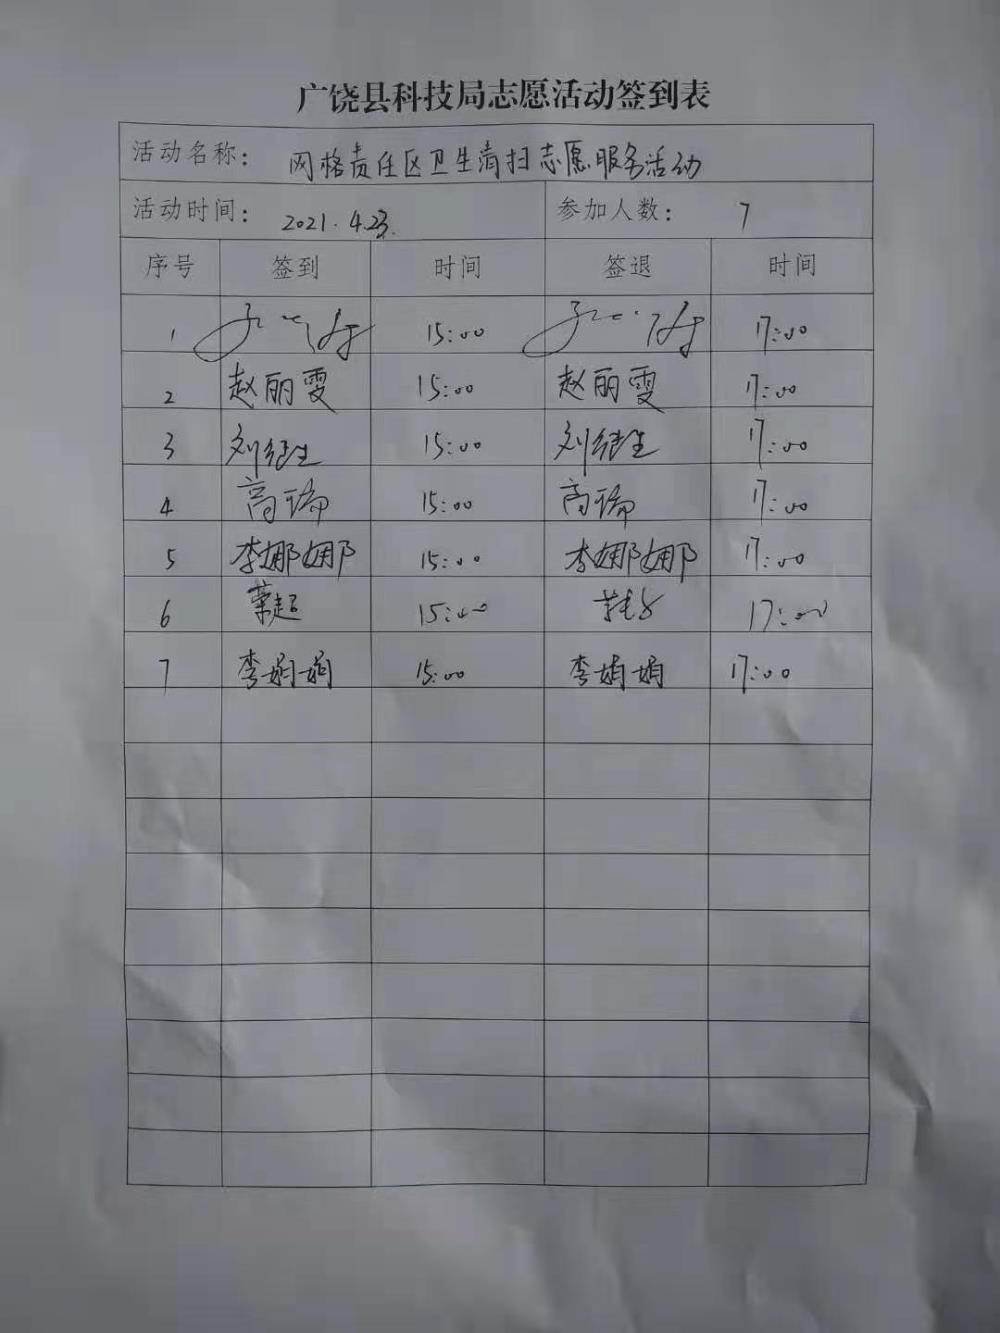 广饶县科技局志愿活动签到表
活动名称： 网格责任区卫生清扫志愿服务活动
活动时间： 2021.4.23. 参加人数： 7
序号 签到 时间 签退 时间
1 15:00 17:00
2 赵丽雯 15:00 赵丽雯 17:00
3 刘继生 15:00 刘继生 17:00
4 高瑞 15:00 高瑞 17:00
5 李娜娜 15:00 李娜娜 17:00
6 15:00 17:00
7 李娟娟 15:00 李娟娟 17:00